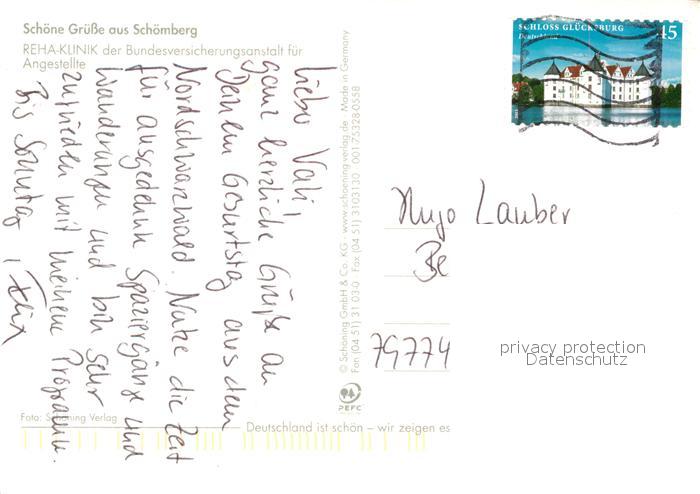 Schöne Grüße aus Schömberg
REHA-KLINIK der Bundesversicherungsanstalt für
Angestellte
Lieber Vati,
ganz herzliche Grüße zu
Deinem Geburtstag aus dem
Nordschwarzwald. Nutze die Zeit
für ausgedehnte Spaziergänge und
Wanderungen und bin sehr
zufrieden mit meinem Programm.
Bis Sonntag, Felix
Foto: Schöning Verlag
© Schöning GmbH & Co. KG · www.schoening-verlag.de · Made in Germany
Fon (04 51) 31 03-0 · Fax (04 51) 3103130 · 00175328-0558
PEFC
Deutschland ist schön – wir zeigen es
SCHLOSS GLÜCKSBURG
Deutschland
45
Hugo Lauber
Be
79774
privacy protection
Datenschutz